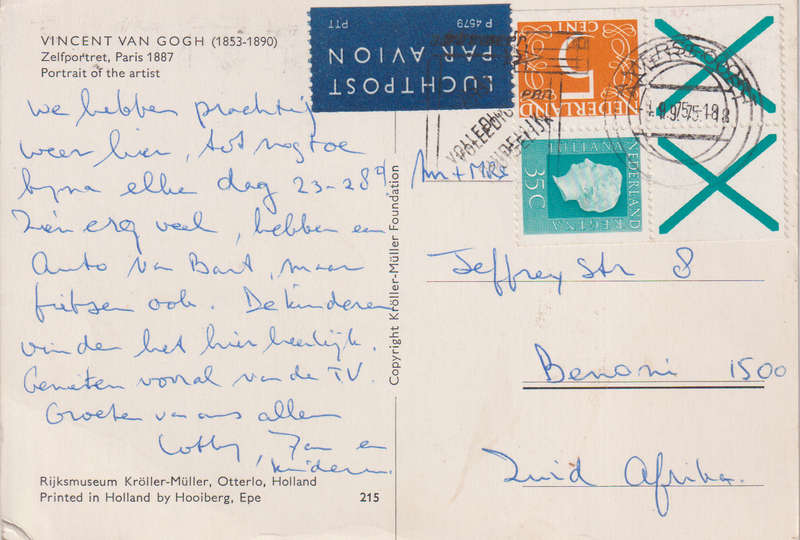 VINCENT VAN GOGH (1853-1890)
Zelfportret, Paris 1887
Portrait of the artist
we hebben prachtig
weer hier, tot nog toe
bijna elke dag 23-28°
Zien erg veel, hebben een
Auto van Bart, maar
fietsen ook. De kinderen
vinden het hier heerlijk.
Genieten vooral van de TV.
Groeten van ons allen
Lotty, Jan en
kinderen.
Rijksmuseum Kröller-Müller, Otterlo, Holland
Printed in Holland by Hooiberg, Epe
215
Copyright Kröller-Müller Foundation
PTT
P 4579
LUCHTPOST
PAR AVION
5
CENT
NEDERLAND
NEDERLAND
JULIANA
REGINA
35C
AMERSFOORT
9.75.18
VOLLEDIG
Mr + MRs
Jeffrey Str 8
Benoni 1500
Zuid Afrika.